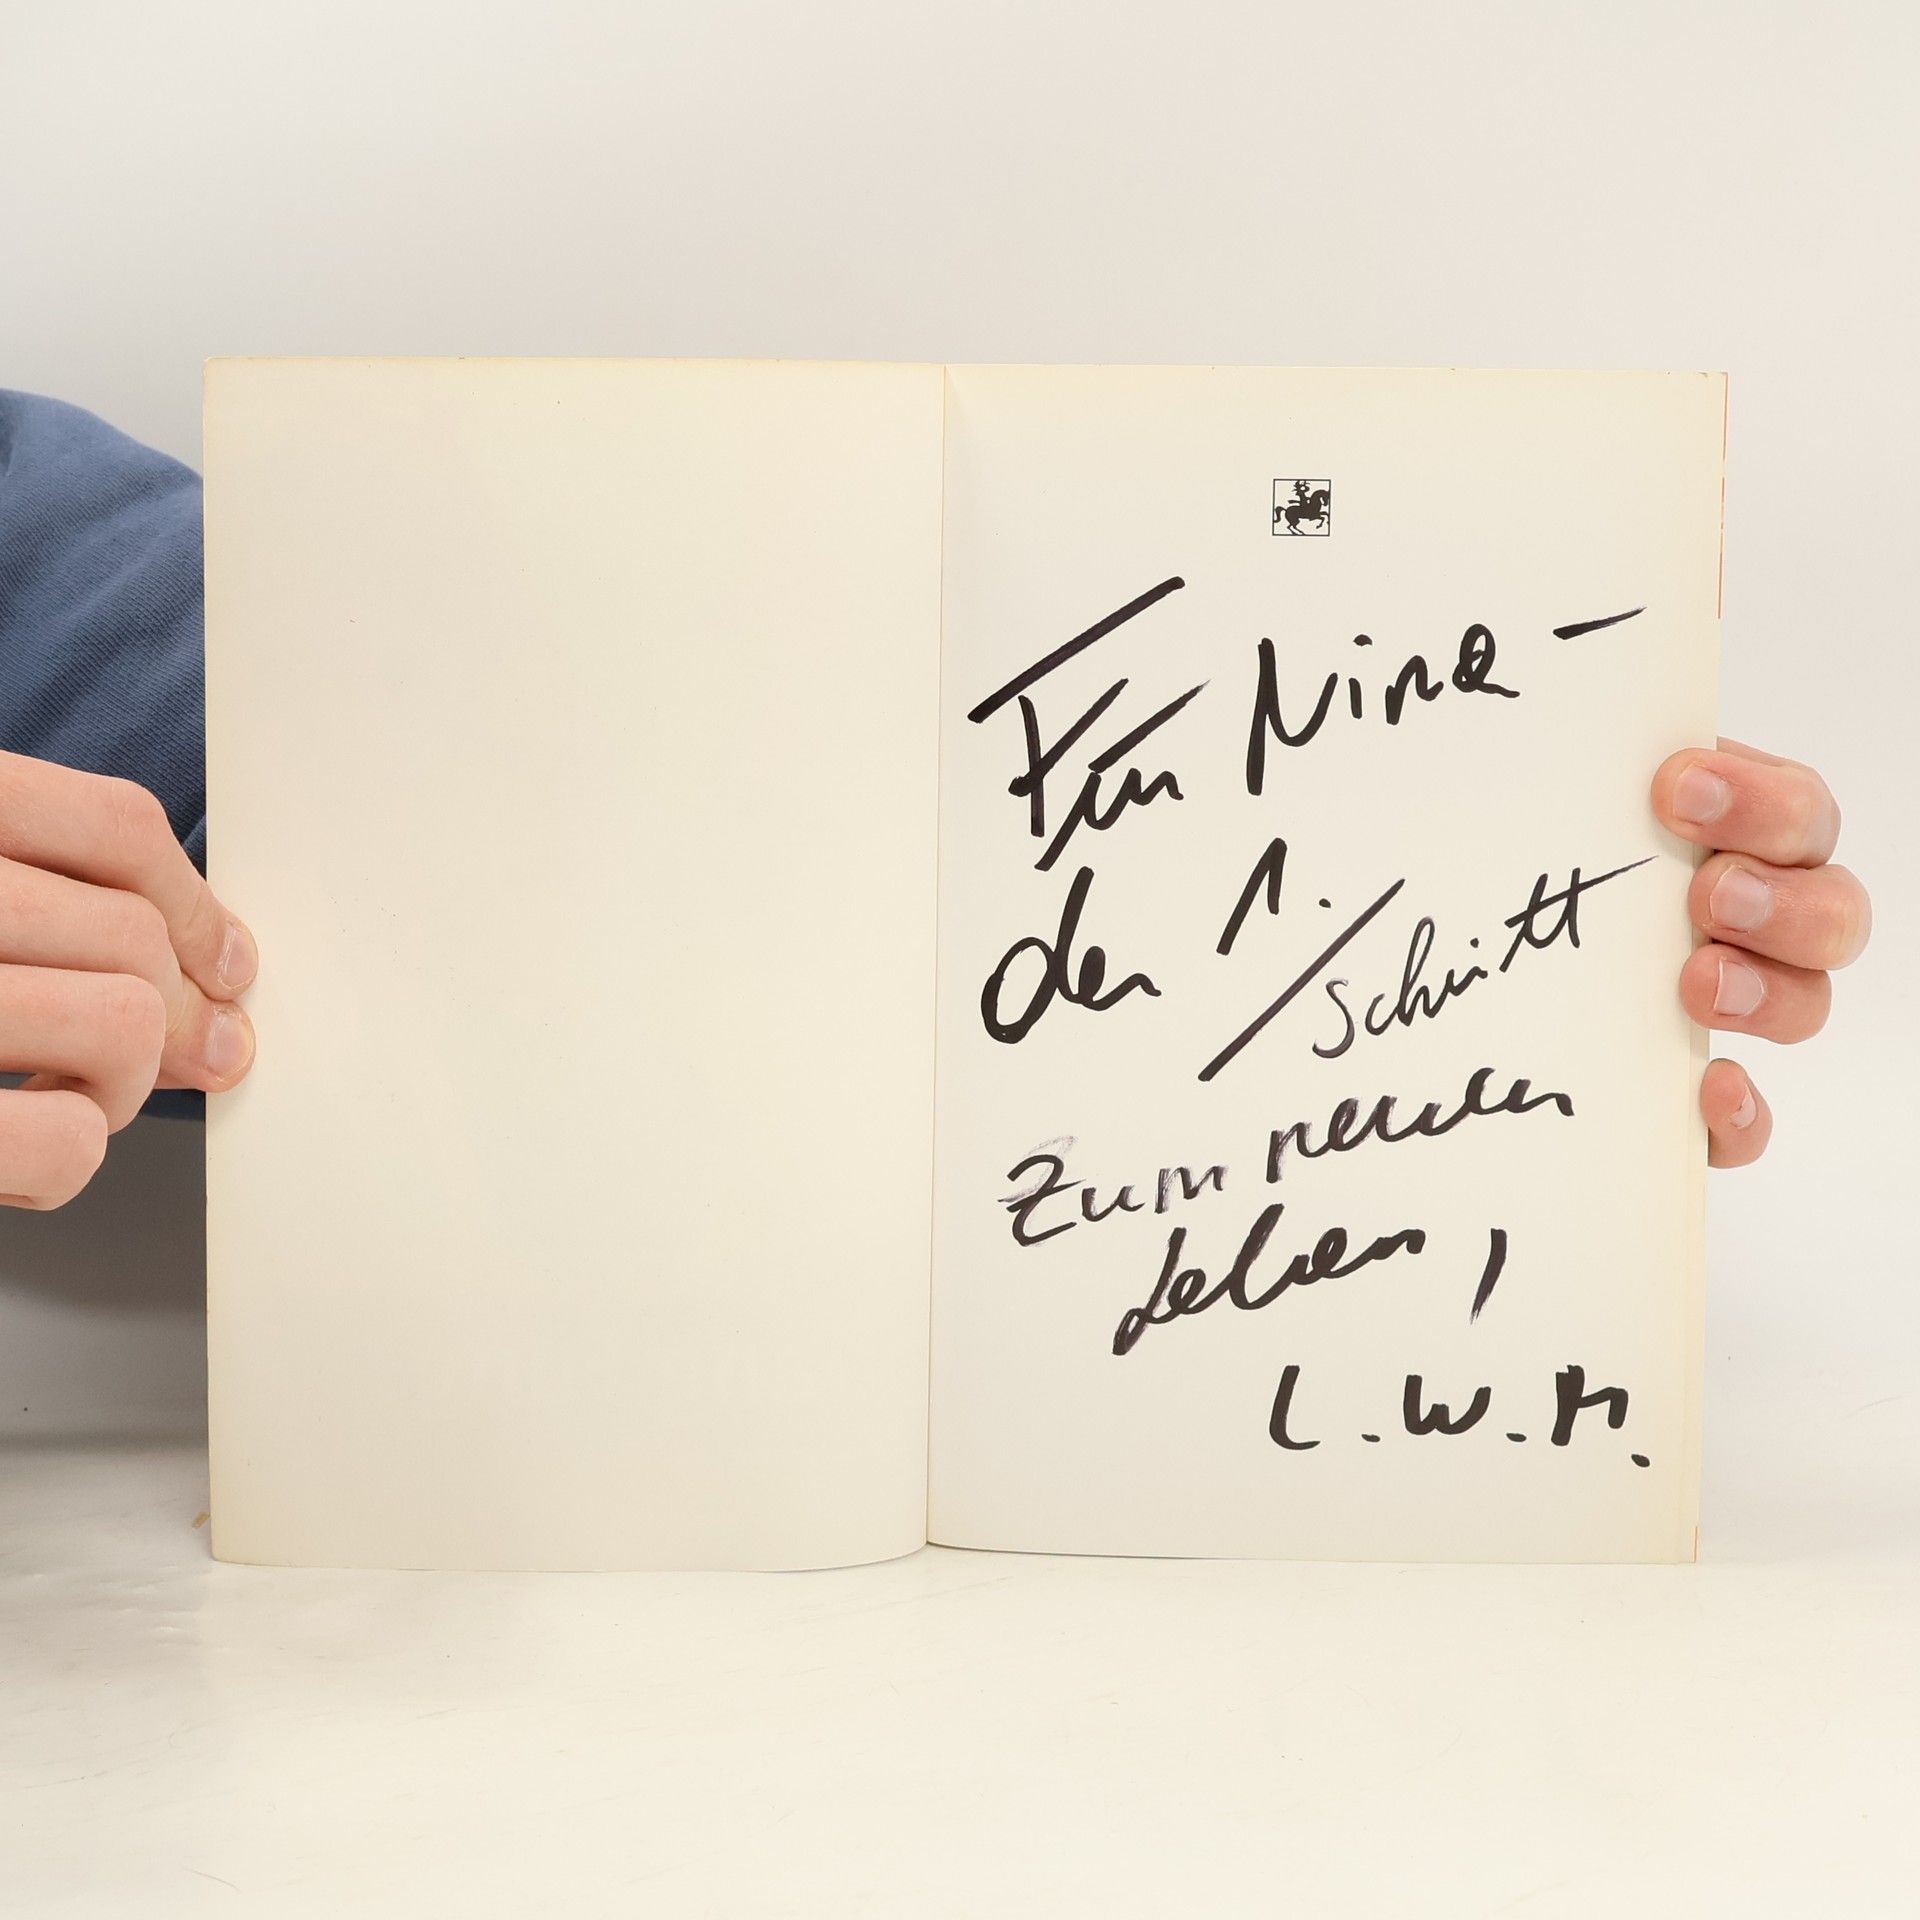 Für Nina –
der 1. Schritt
zum neuen
Leben,
L.W.M.